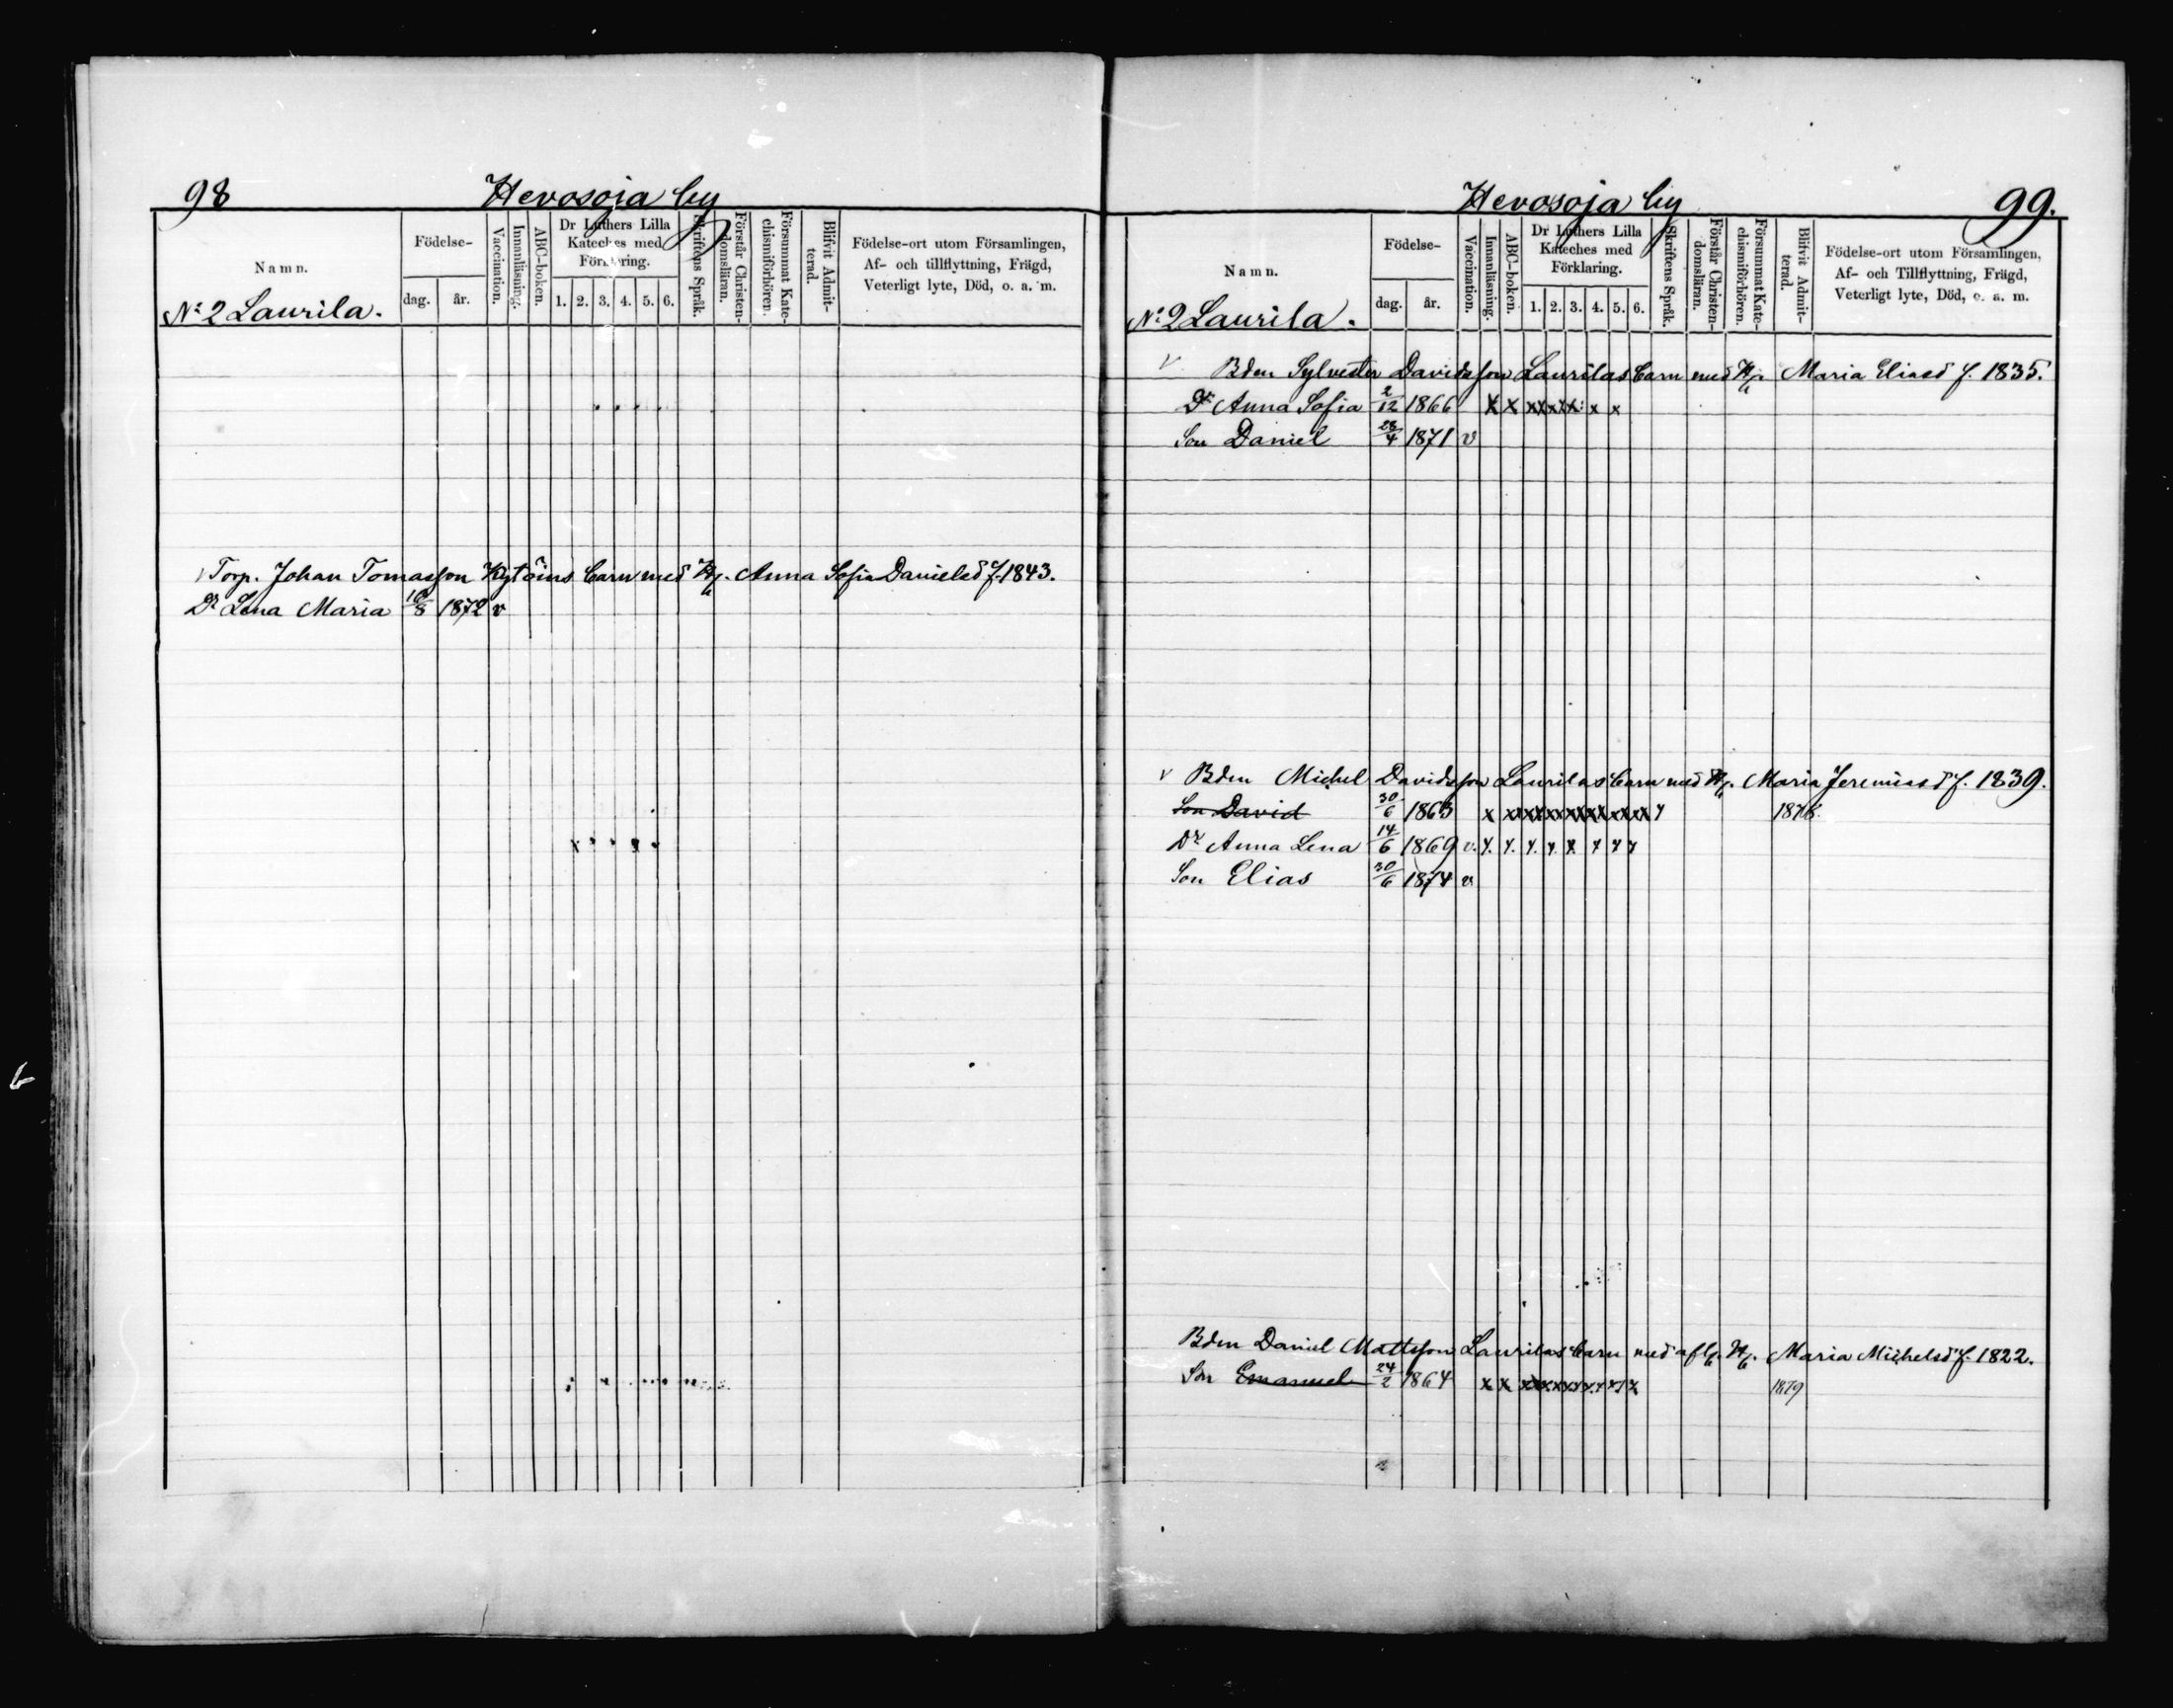 98 Hevosoja by
Namn. Födelse- dag. år. Vaccination. Innanläsning. ABC-boken. Dr Luthers Lilla Kateches med Förklaring. 1. 2. 3. 4. 5. 6. Skriftens Språk. Förstår Christendomsläran. Försummat Katechismiförhören. Blifvit Admitterad. Födelse-ort utom Församlingen, Af- och tillflyttning, Frägd, Veterligt lyte, Död, o. a. m.
No 2 Laurila.
v Torp. Johan Tomasson Kytöins barn med H. Anna Sofia Danielsd f. 1843.
Dr Lena Maria 16/8 1872 v
Hevosoja by 99.
Namn. Födelse- dag. år. Vaccination. Innanläsning. ABC-boken. Dr Luthers Lilla Kateches med Förklaring. 1. 2. 3. 4. 5. 6. Skriftens Språk. Förstår Christendomsläran. Försummat Katechismiförhören. Blifvit Admitterad. Födelse-ort utom Församlingen, Af- och Tillflyttning, Frägd, Veterligt lyte, Död, o. a. m.
No 2 Laurila.
v Bden Sylvester Davidsson Laurilas barn med H. Maria Eliasd f. 1835.
Dr Anna Sofia 2/12 1866 x x x x x x x x x
Son Daniel 28/4 1871 v
v Bden Michel Davidsson Laurilas barn med H. Maria Jeremiasd f. 1839.
Son David 30/6 1863 x x x x x x x x x x x x x 1878.
Dr Anna Lena 14/6 1869 v. x. x. x. x. x x x x
Son Elias 30/6 1874 v
Bden Daniel Mattsson Laurilas barn med afl. H. Maria Michelsd f. 1822.
Son Emanuel 24/2 1864 x x x x x x x x x x x 1879